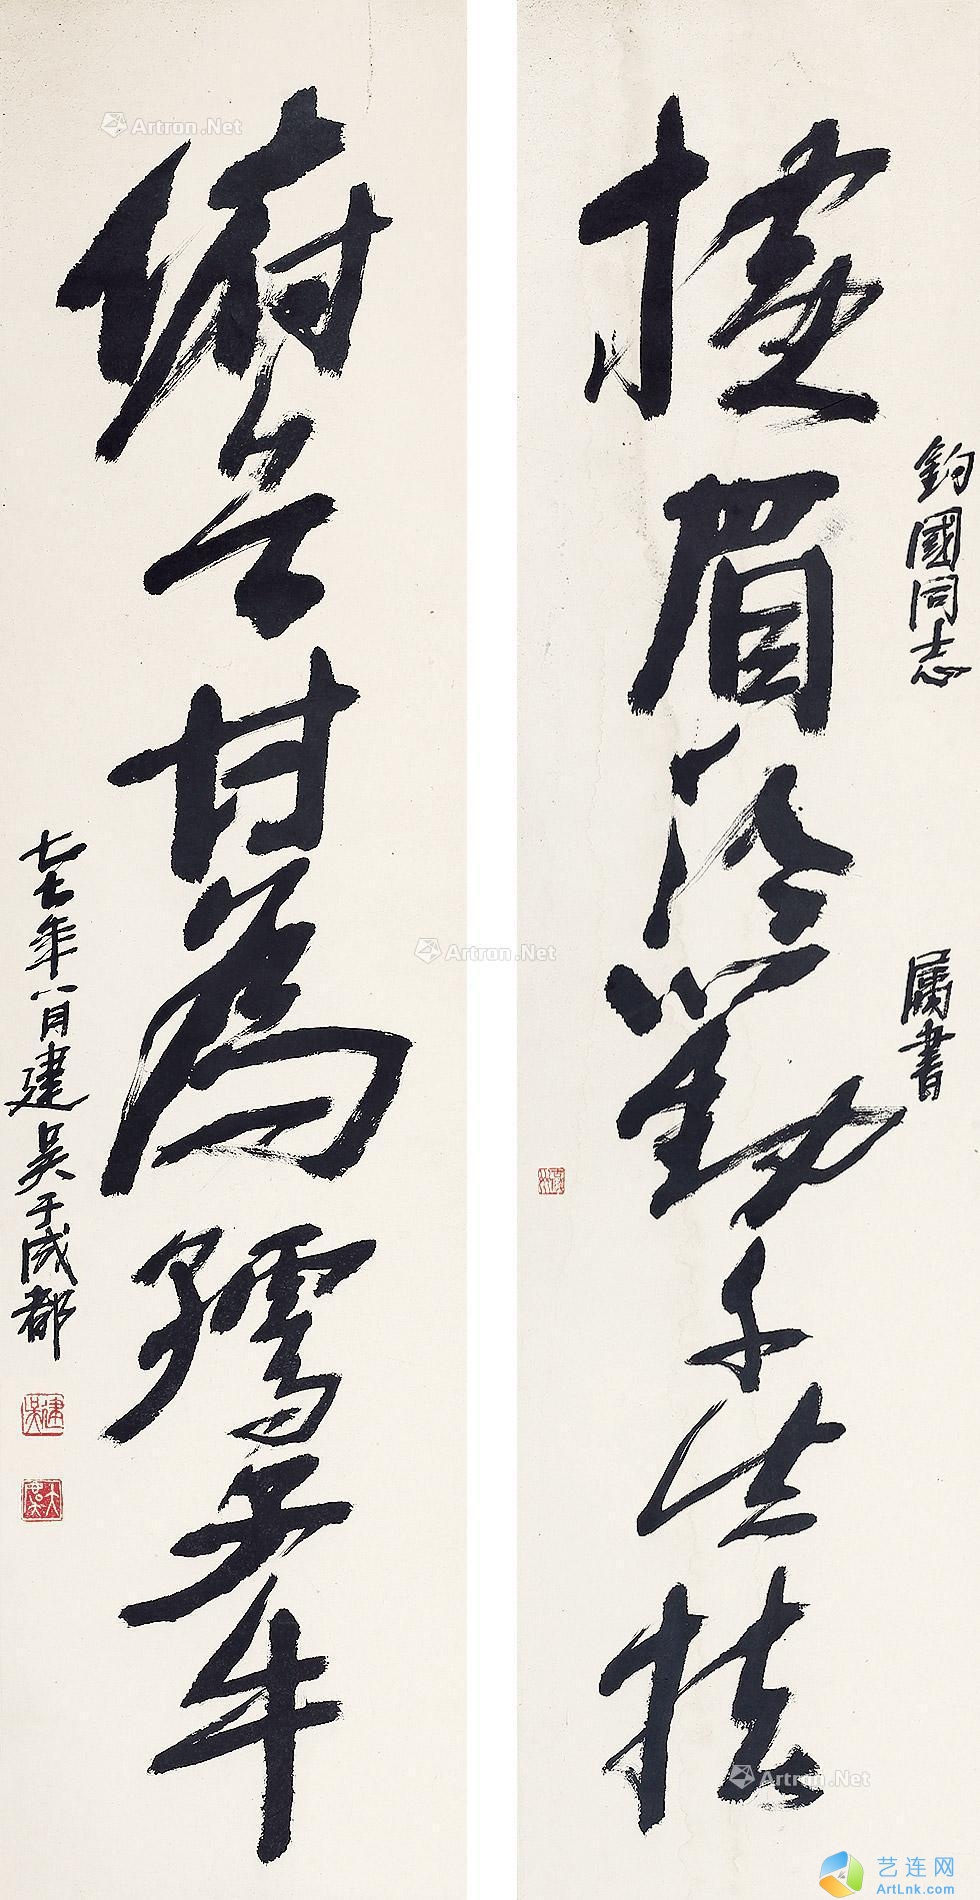 鈞國同志
属書
橫眉冷對千夫指
俯首甘為孺子牛
七七年八月建吴于成都
建吴
Artron.Net
Artron.Net
Artron.Net
艺连网
ArtLnk.com